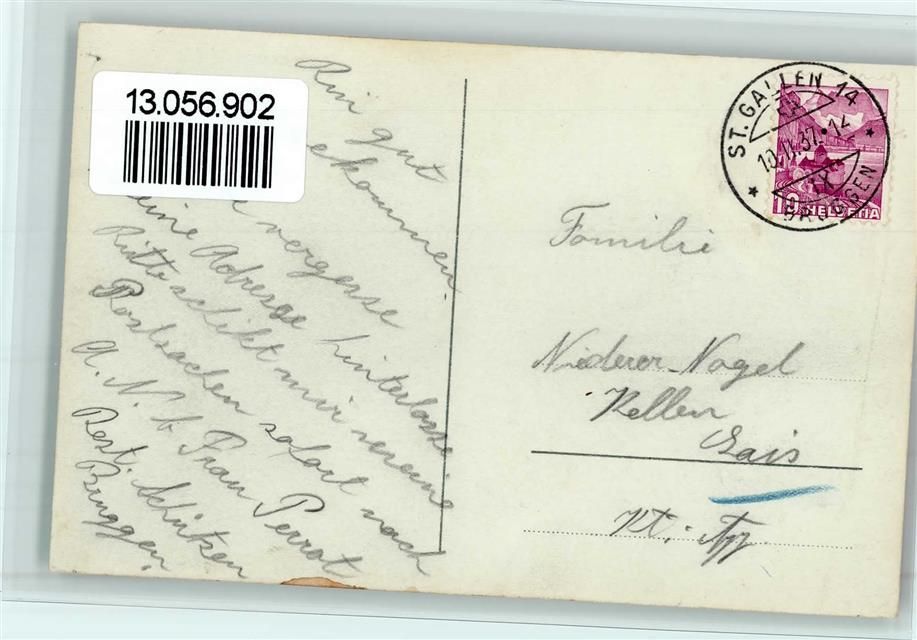 13.056.902
Bin gut
ekommen
vergesse
eine Adresse hinterlasse
Bitte schikt mir
sofort nach
A. N. b. Frau Perrot
Rest. Schützen
Bruggen.
ST. GALLEN 14
BRUGGEN
10 HELVETIA
Familie
Niederer-Nagel
Kellen
Gais
Kt. App